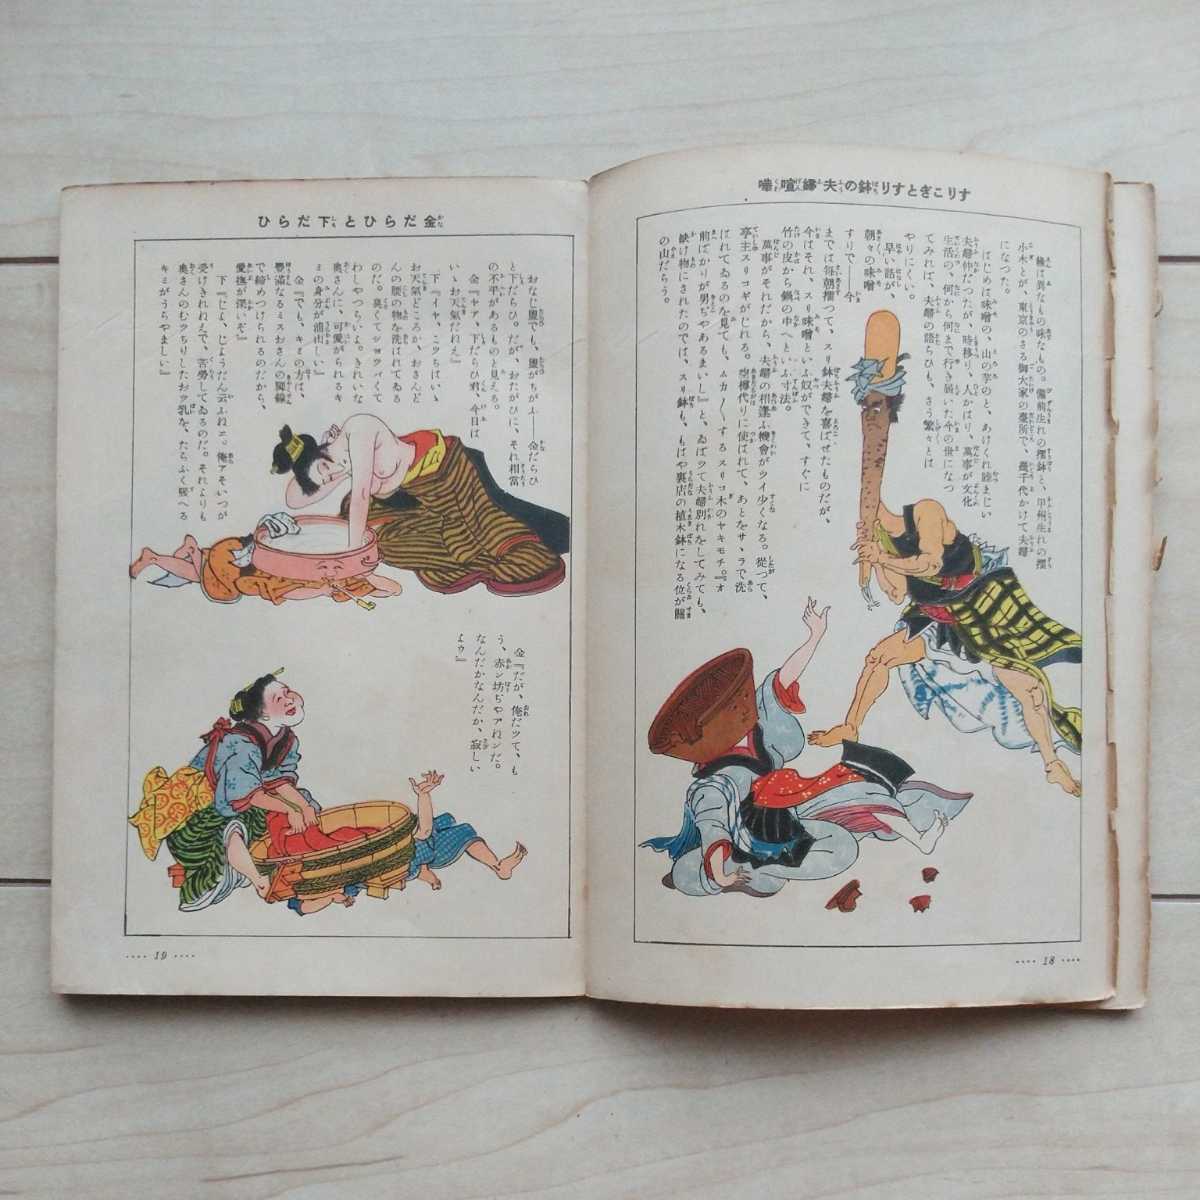 すりこぎとすり鉢の夫婦喧嘩
緣は異なもの味なもの。備前生れの摺鉢と、甲州生れの摺
小木とが、東京のさる御大家の臺所で、幾千代かけて夫婦
になつた。
はじめは味噌の、山の芋のと、あけくれ睦まじい
夫婦仲だつたが、時移り、人かはり、萬事が文化
生活の、何から何まで行き屆いた今の世になつ
てみれば、夫婦の語らひも、さう繁々とは
やりにくい。
早い話が、
朝々の味噌
すりで――今
までは每朝摺つて、スリ鉢夫婦を喜ばせたものだが、
今はそれ、スリ味噌といふ奴ができて、すぐに
竹の皮から鍋の中へといふ寸法。
萬事がそれだから、夫婦の相逢ふ機會がツイ少くなる。從つて、
亭主スリコギがじれる。空樽代りに使はれて、あとをサヽラで洗
はれてゐるのを見ても、ムカ〳〵するスリコ木のヤキモチ。『オ
前ばかりが男ぢやあるまいし』と、ゐばツて夫婦別れをしてみても、
缺け物にされたのでは、スリ鉢も、もはや裏店の植木鉢になる位が關
の山だらう。
18
金だらひと下だらひ
おなじ盥でも、盥がちがふ――金だらひ
と下だらひ。だが、おたがひに、それ相當
の不平があるものと見える。
金『ヤア、下だらひ君、今日は
いゝお天氣だねえ』
下『イヤ、こツちはいゝ
お天氣どころか、おさんど
んの腰の物を洗はれてゐる
のだ。臭くてショツパくて
わしやつらいよ。きれいな
奥さんに、可愛がられるキ
ミの身分が浦山しい』
金『でも、キミの方は、
豐滿なるミスおさんの脚線
で締めつけられるのだから、
愛撫が深いぞ』
下『じよ、じようだん云ふねエ。俺アそいつが
受けきれねえで、苦勞してゐるのだ。それよりも
奥さんのムツちりしたおツ乳を、たらふく吸へる
キミがうらやましい』
金『だが、俺だツて、も
う、赤ン坊ぢやアねンだ。
なんだかなんだか、寂しい
よウ』
19